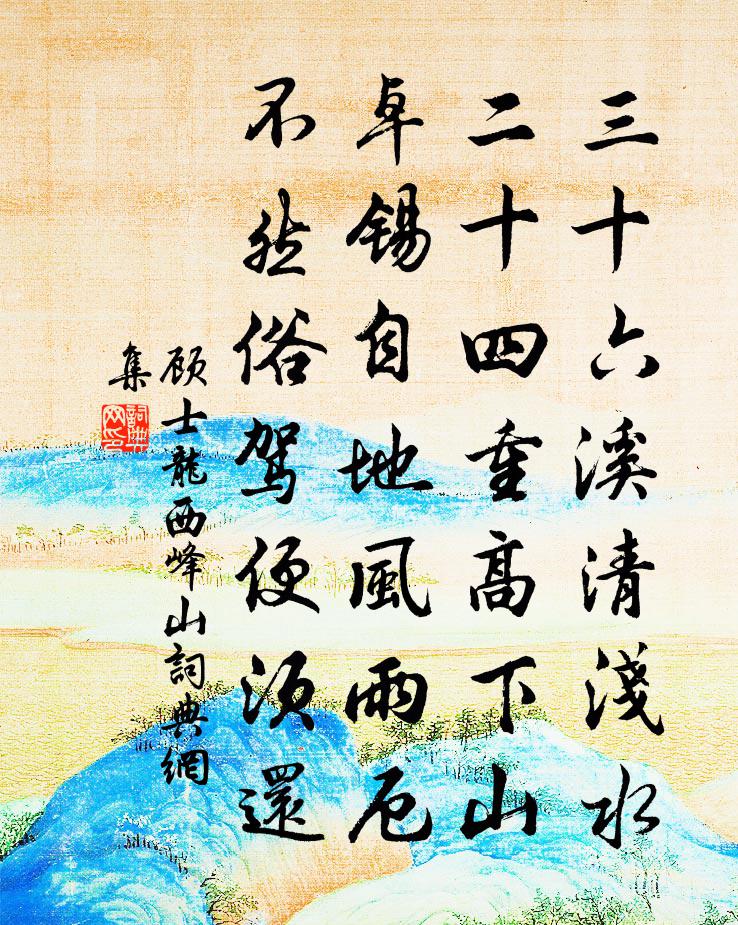 三十六溪清淺水
二十四重高下山
卓錫自地風雨厄
不然俗駕便須還
顾士龍西峰山詞典網
集
詞典
网